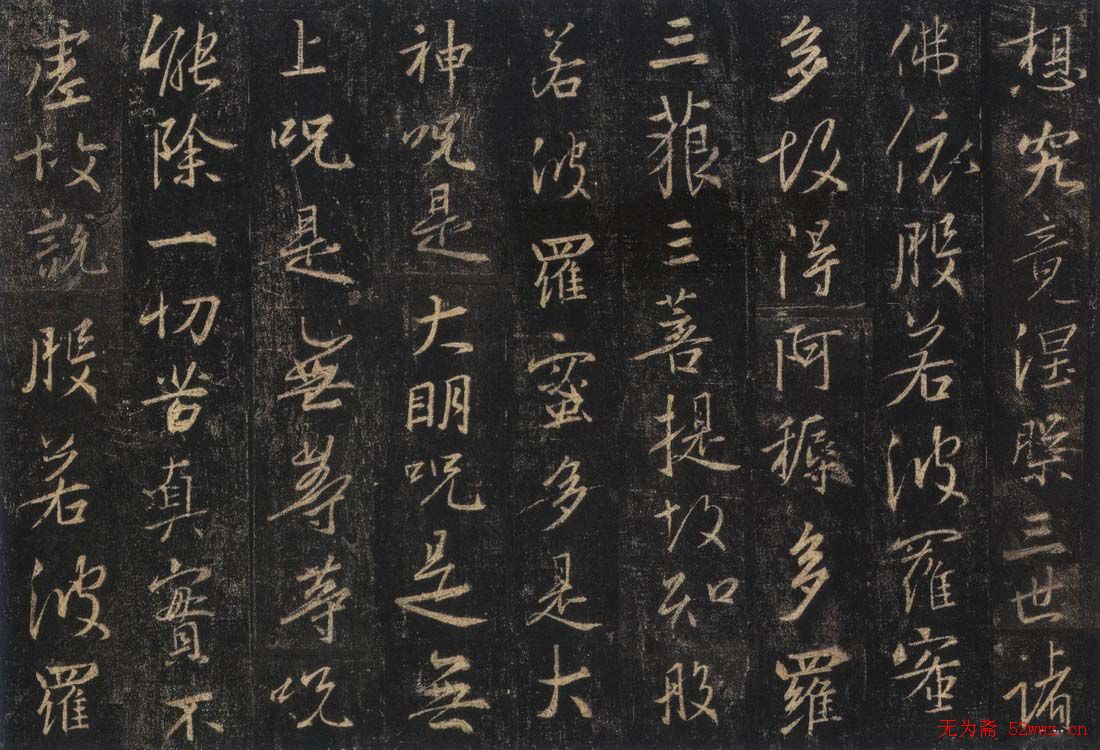 想究竟涅槃三世諸
佛依般若波羅蜜
多故得阿耨多羅
三藐三菩提故知般
若波羅蜜多是大
神呪是大明呪是無
上呪是無等等呪
能除一切苦真實不
虛故說般若波羅
无为斋 52wwz.cn